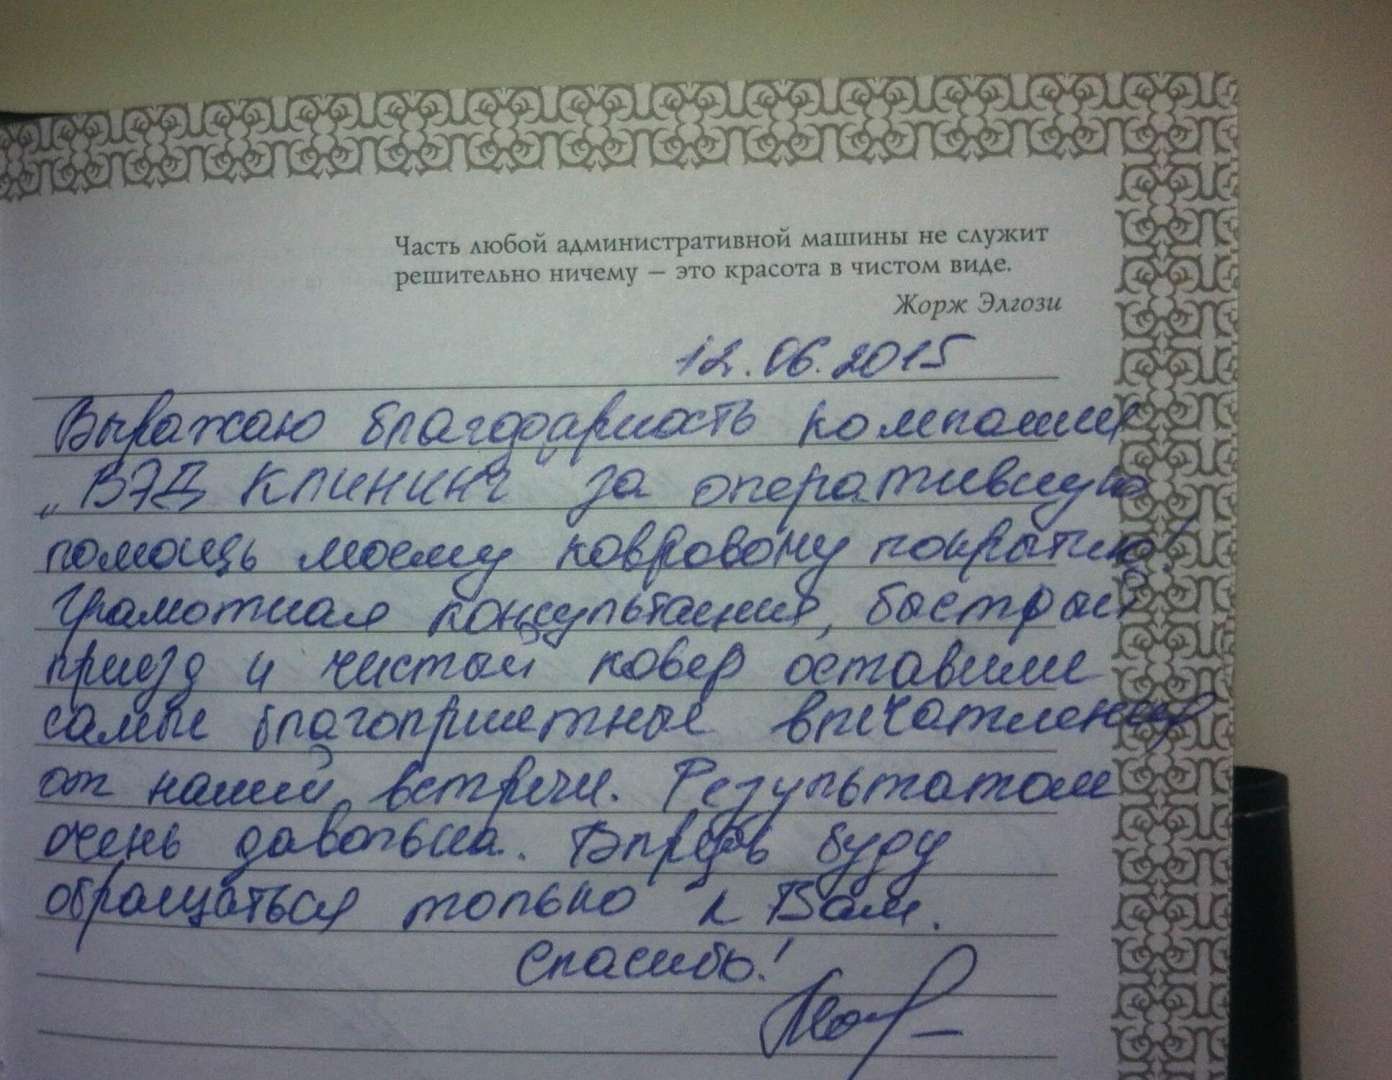 Часть любой административной машины не служит
решительно ничему – это красота в чистом виде.
Жорж Элгози
12.06.2015
Выражаю благодарность компании
„ВЭД КЛИНИНГ за оперативную
помощь моему ковровому покрытию!
Грамотная консультация, быстрый
приезд и чистый ковер оставили
самые благоприятные впечатления
от нашей встречи. Результатом
очень давольна. Впредь буду
обращаться только к Вам.
Спасибо!